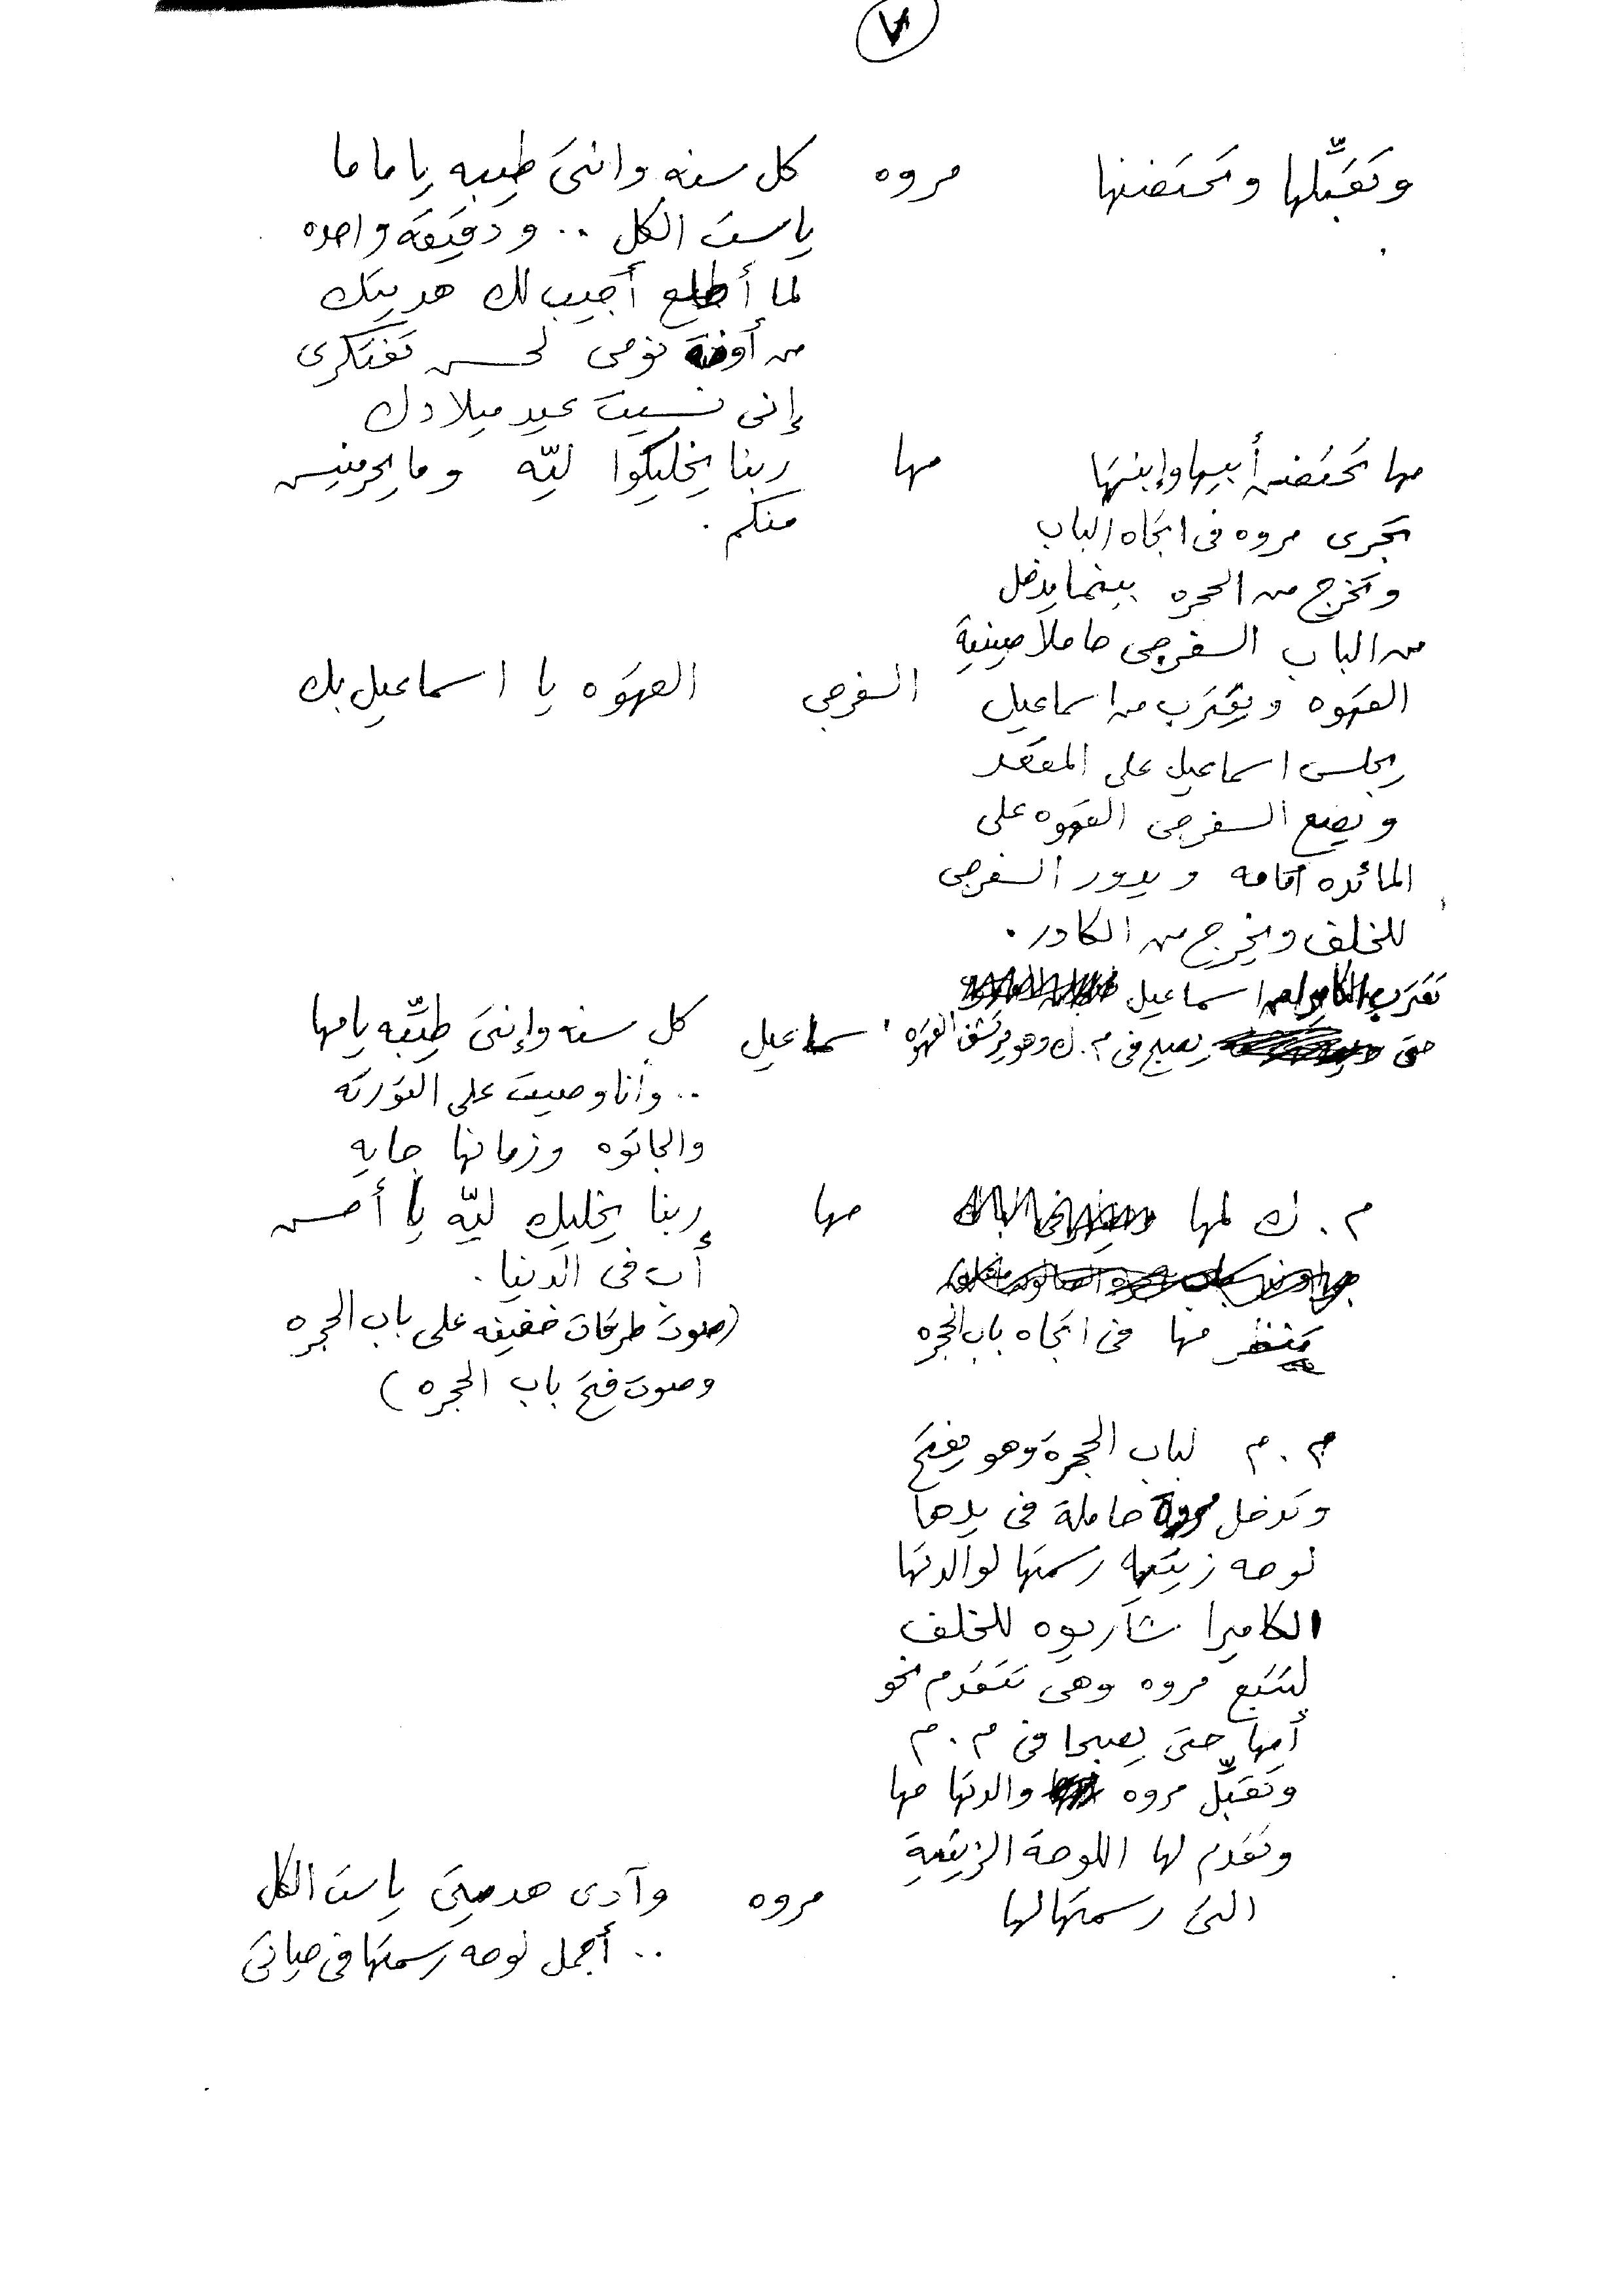 ٧
وتقبِّلها وتحتضنها مروه كل سنه وانتى طيبه يا ماما
يا ست الكل .. ودقيقة واحده
لما أطلع أجيب لك هديتك
من أوضة نومى لحسن تفتكرى
إنى نسيت عيد ميلادك
مها تحتضن أبيها وإبنتها مها ربنا يخليكوا ليّه وما يحرمنيش
منكم .
تجرى مروه فى اتجاه الباب
وتخرج من الحجره بينما يدخل
من الباب السفرجى حاملاً صينية
القهوه ويقترب من اسماعيل السفرجى القهوه يا اسماعيل بك
يجلس اسماعيل على المقعد
ويضع السفرجى القهوه على
المائده أمامه ويدور السفرجى
للخلف ويخرج من الكادر .
تقترب الكاميرا من اسماعيل
حتى يصبح فى م . ك وهو يرتشف القهوه اسماعيل كل سنه وإنتى طيِّبه يا مها
.. وأنا وصيت على التورته
والجاتوه وزمانها جايه
م . ك لمها مها ربنا يخليك ليّه يا أحسن
أب فى الدنيا .
تنظر مها فى اتجاه باب الحجره (صوت طرقات خفيفه على باب الحجره
وصوت فتح باب الحجره )
م . م لباب الحجرة وهو يفتح
وتدخل مروة حاملة فى يدها
لوحه زيتيه رسمتها لوالدتها
الكاميرا شاريوه للخلف
لتتبع مروه وهى تتقدم نحو
أمها حتى يصبحا فى م . م
وتقبِّل مروه والدتها مها
وتقدم لها اللوحة الزيتية
التى رسمتها لها مروه وآدى هديتى يا ست الكل
.. أجمل لوحه رسمتها فى حياتى